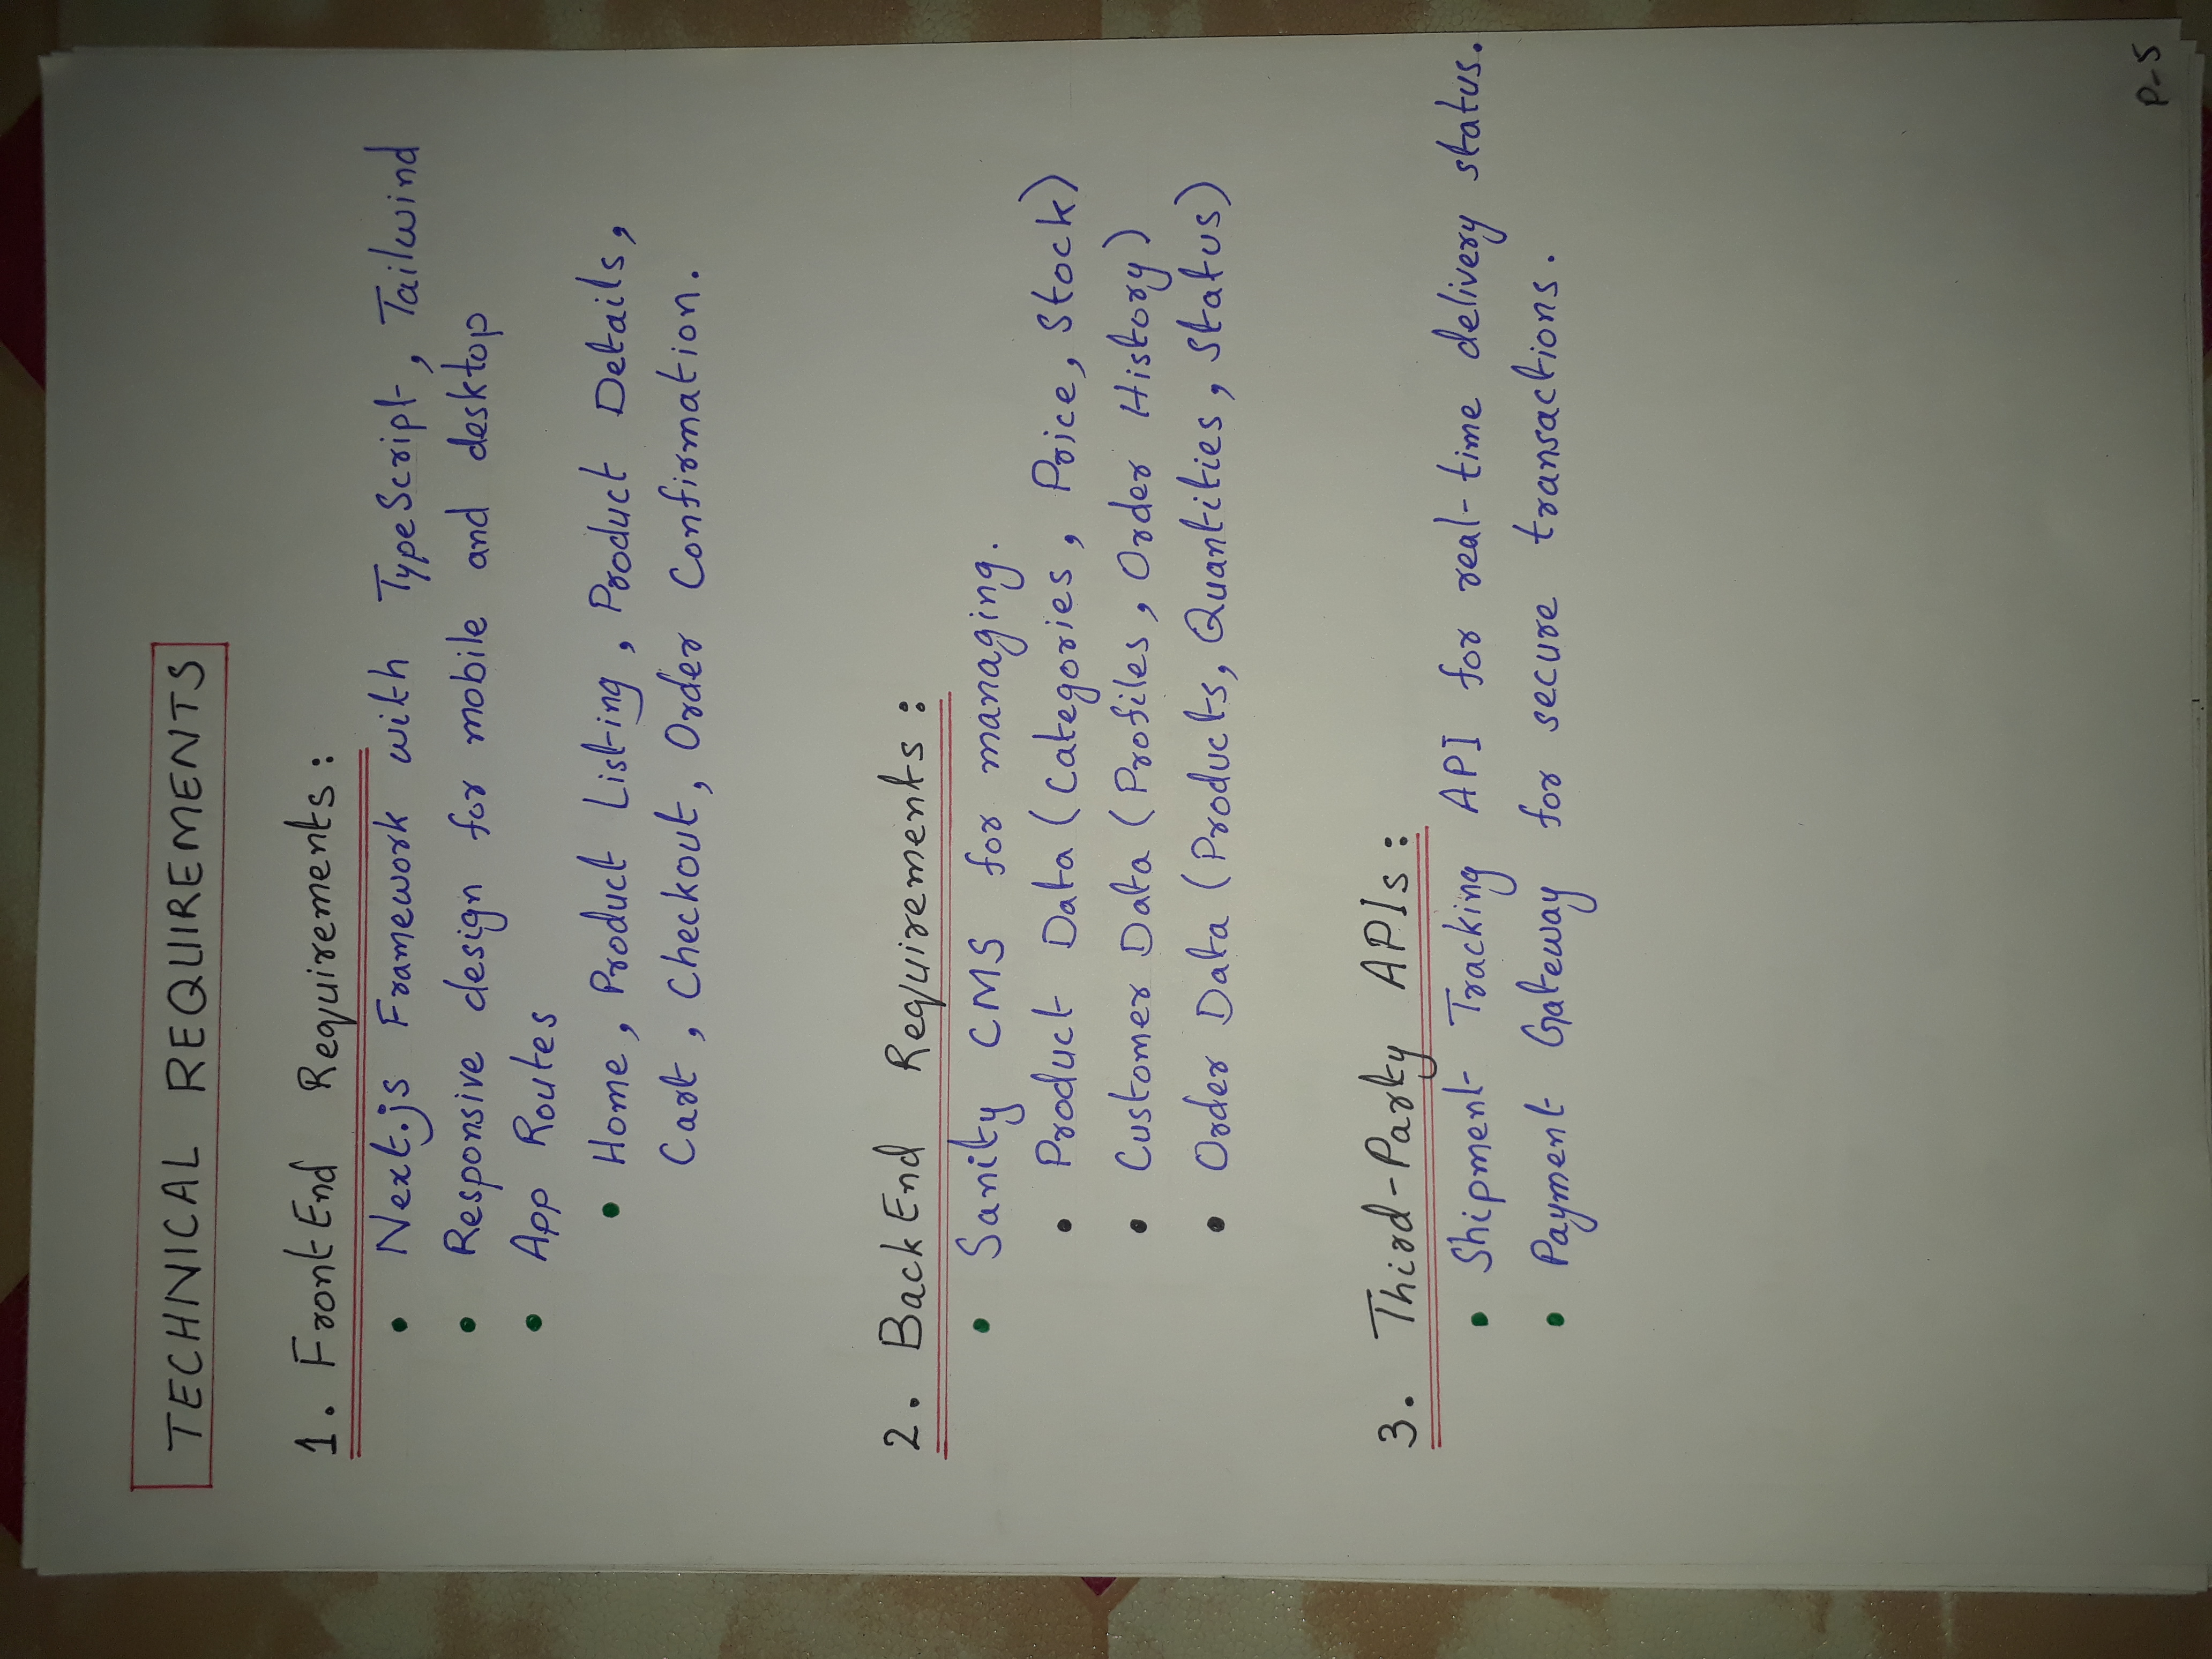 TECHNICAL REQUIREMENTS
1. FrontEnd Requirements:
• Next.js Framework with TypeScript, Tailwind
• Responsive design for mobile and desktop
• App Routes
• Home, Product Listing, Product Details,
Cart, Checkout, Order Confirmation.
2. BackEnd Requirements:
• Sanity CMS for managing.
• Product Data (Categories, Price, Stock)
• Customer Data (Profiles, Order History)
• Order Data (Products, Quantities, Status)
3. Third-Party APIs:
• Shipment Tracking API for real-time delivery status.
• Payment Gateway for secure transactions.
P-5